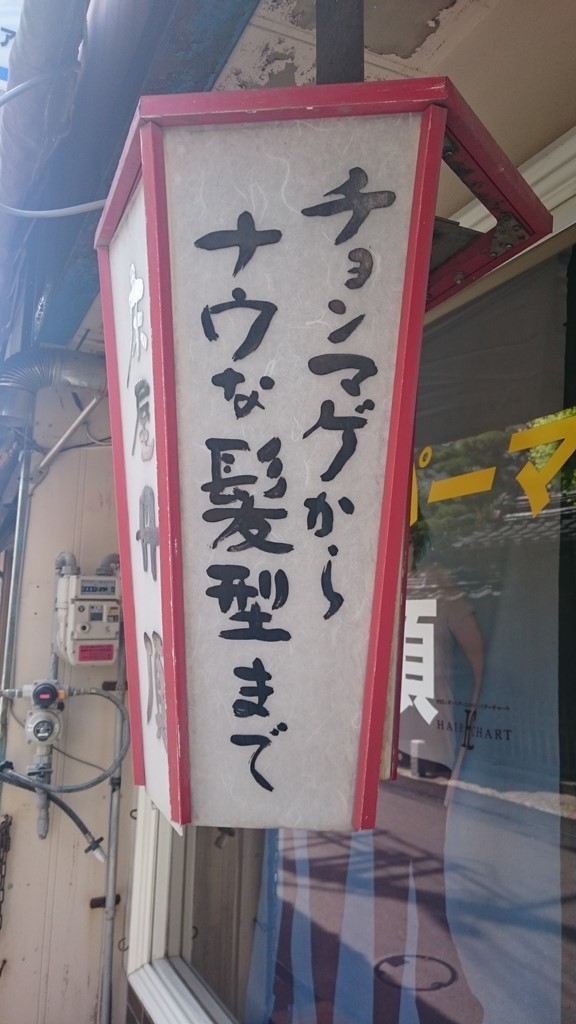 チョンマゲから
ナウな髪型まで
床屋丹頂
パーマ
頂
HAIR CHART